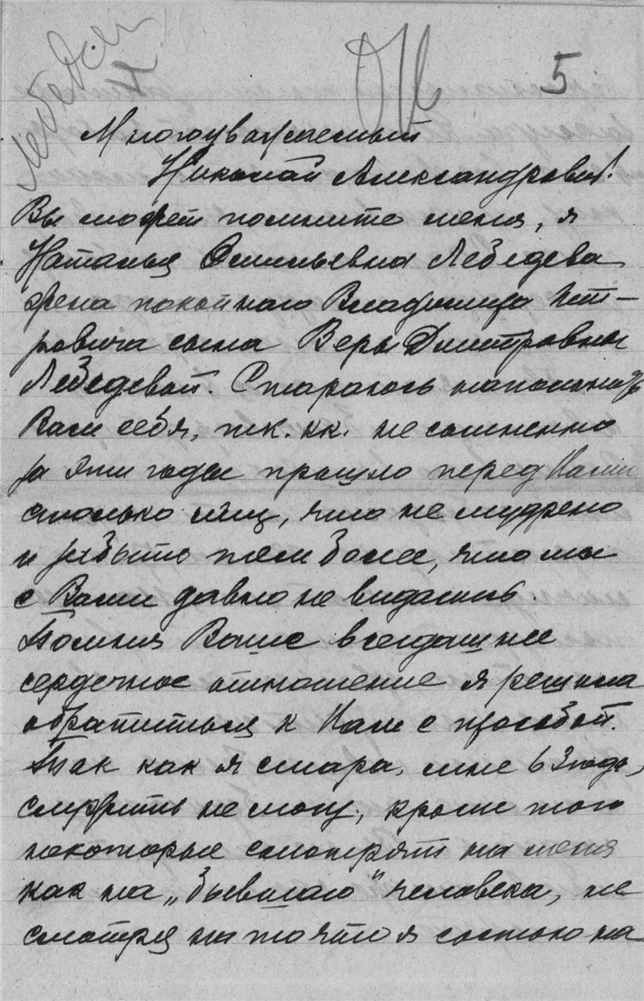 Лебедева
5
Многоуважаемый
Николай Александрович!
Вы может помните меня, я
Наталья Васильевна Лебедева
жена покойного Владимира Пет-
ровича сына Веры Дмитровны
Лебедевой. Стараюсь напомнить
Вам себя, т.к. несомненно
за эти годы прошло перед Вами
столько лиц, что не мудрено
и забыть тем более, что мы
с Вами давно не видались.
Помня Ваше всегдашнее
сердечное отношение я решила
обратиться к Вам с просьбой.
Так как я стара, мне 63 года,
служить не могу, кроме того
некоторые смотрят на меня
как на „бывшаго" человека, не
смотря на то что я состою на